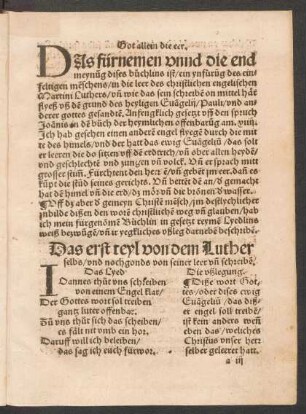 Got allein die eer.
Das fürnemen vnnd die end
meynūg dises büchlins ist/ eyn ynfürūg des ein-
feltigen mēschens/ in die leer des christlichen engelischen
Martini Luthers/ vn̄ wie das sein schreibē on mittel hāt
flyeß vß dē grund des heyligen Euāgelij/ Pauls/ vnd an-
derer gottes gesandtē. Anfengklich gesetzt vff den spruch
Joānis an dē bůch der heymlichen offenbarūg am.
Ich hab gesehen einen anderē engel flyegē durch die mit-
te des himels/ vnd der hatt das ewig Euāgeliū/ das solt
er leeren die do sitzen vff dē erdtrich/ vn̄ aber allen heydē/
vnd geschlechtē vnd zungen vn̄ volck. Vn̄ er sprach mitt
grosser stim̄. Fürchtent den herrē/ vn̄ gebēt jm eer. dan̄ es
küpt die stūd seines gerichts. Vn̄ bettē dē an/ d' gemacht
hat dē himel vn̄ die erd/ dz mör vn̄ die brōnen d' wasser.
¶ Vff dz aber d' gemeyn Christē mēsch/ jm destlychlicher
ynbilde dißen den worē christlichē weg vn̄ glauben/ hab
ich mein fürgenōmē Büchlin in gesetzt reymē Lyedlins
weiß bezwūgē/ vn̄ ir yegklichs vßleg darnebē beschribē.
Das erst teyl von dem Luther
selbs/ vnd nochgonds von seiner leer vn̄ schreibē.
Das Lyed
Joannes thůt vns schreiben
von einem Engel klar/
Der Gottes wort sol treiben
gantz luter offenbar.
Zů vns thůt sich das scheiben/
es fält nit vmb ein hor.
Daruff will ich beleiben/
das sag ich euch fürwor.
Die vßlegung.
¶ Diße wort Got-
tes/ oder dises ewig
Euāgeliū/ das diß-
er engel soll treibē/
ist kein anders wen̄
eben das/ welches
Christus vnser her
selber geleeret hatt.
a iij